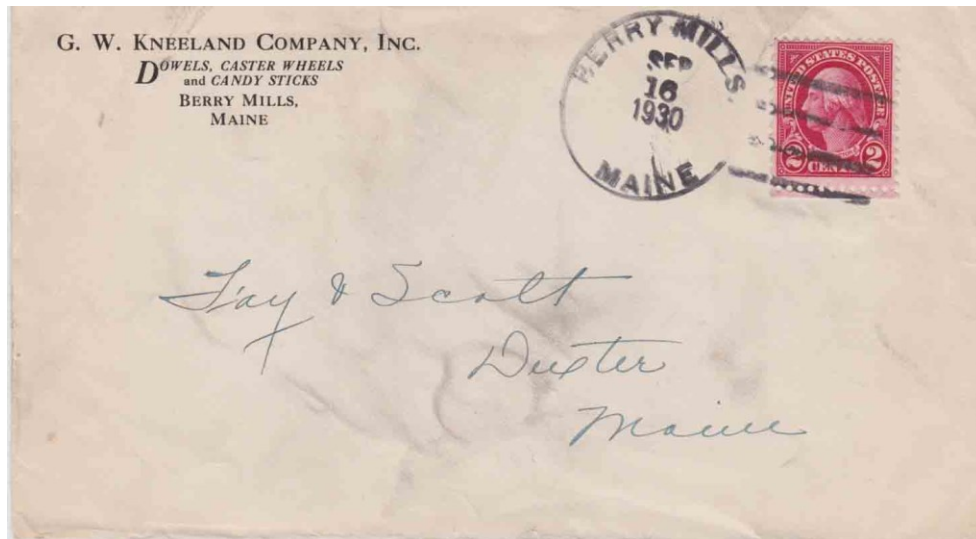 G. W. KNEELAND COMPANY, INC.
DOWELS, CASTER WHEELS
and CANDY STICKS
BERRY MILLS,
MAINE
BERRY MILLS.
SEP
16
1930
MAINE
UNITED STATES POSTAGE
2 CENTS 2
Fay & Scott
Dexter
Maine